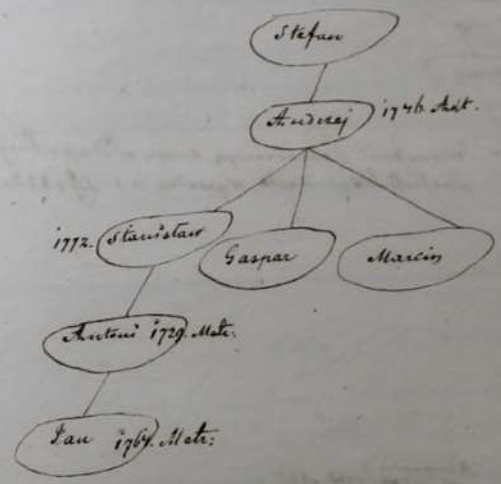 Stefan
Andrzej 1746. Akt.
1772. Stanisław Gaspar Marcin
Antoni 1729. Metr:
Jan 1767. Metr: